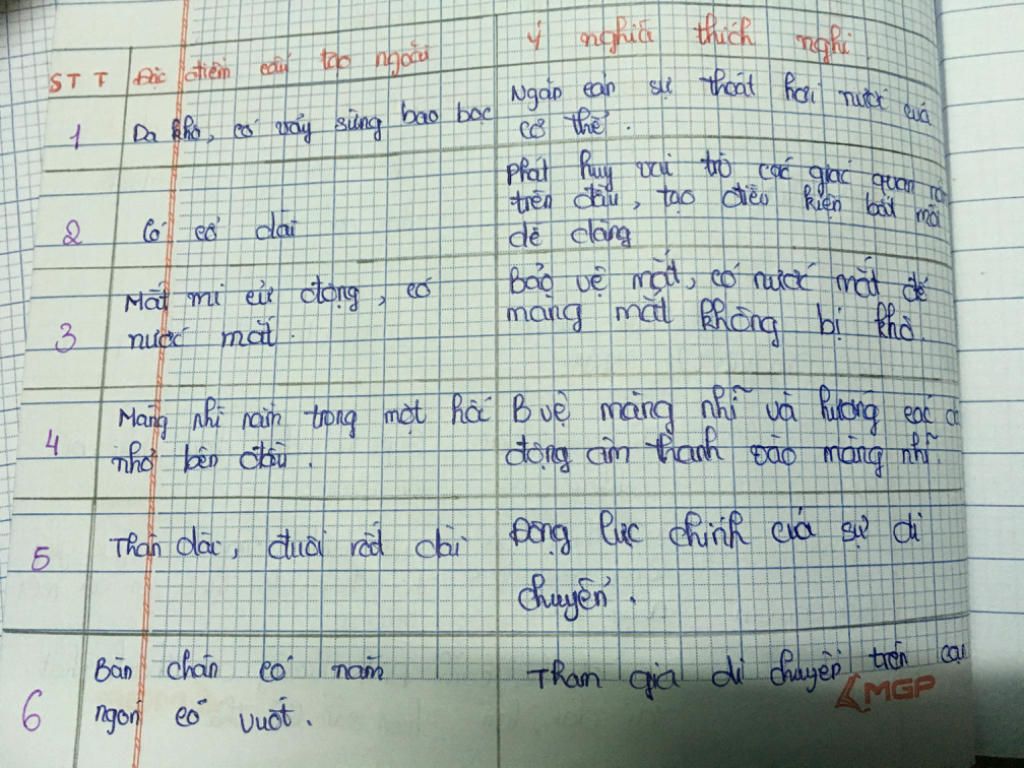 STT Đặc điểm cấu tạo ngoài Ý nghĩa thích nghi
1 Da khô, có vảy sừng bao bọc
Ngăn cản sự thoát hơi nước của
cơ thể.
2 Có cổ dài
Phát huy vai trò các giác quan
trên đầu, tạo điều kiện bắt mồi
dễ dàng
3 Mắt mi cử động, có
nước mắt.
Bảo vệ mắt, có nước mắt để
mang mắt không bị khô.
4 Màng nhĩ nằm trong một hốc
nhỏ bên đầu.
B vệ màng nhĩ và hướng các
động âm thanh vào màng nhĩ.
5 Thân dài, đuôi rất dài
Động lực chính của sự di
chuyển.
6 Bàn chân có năm
ngón có vuốt.
Tham gia di chuyển trên cạn
MGP